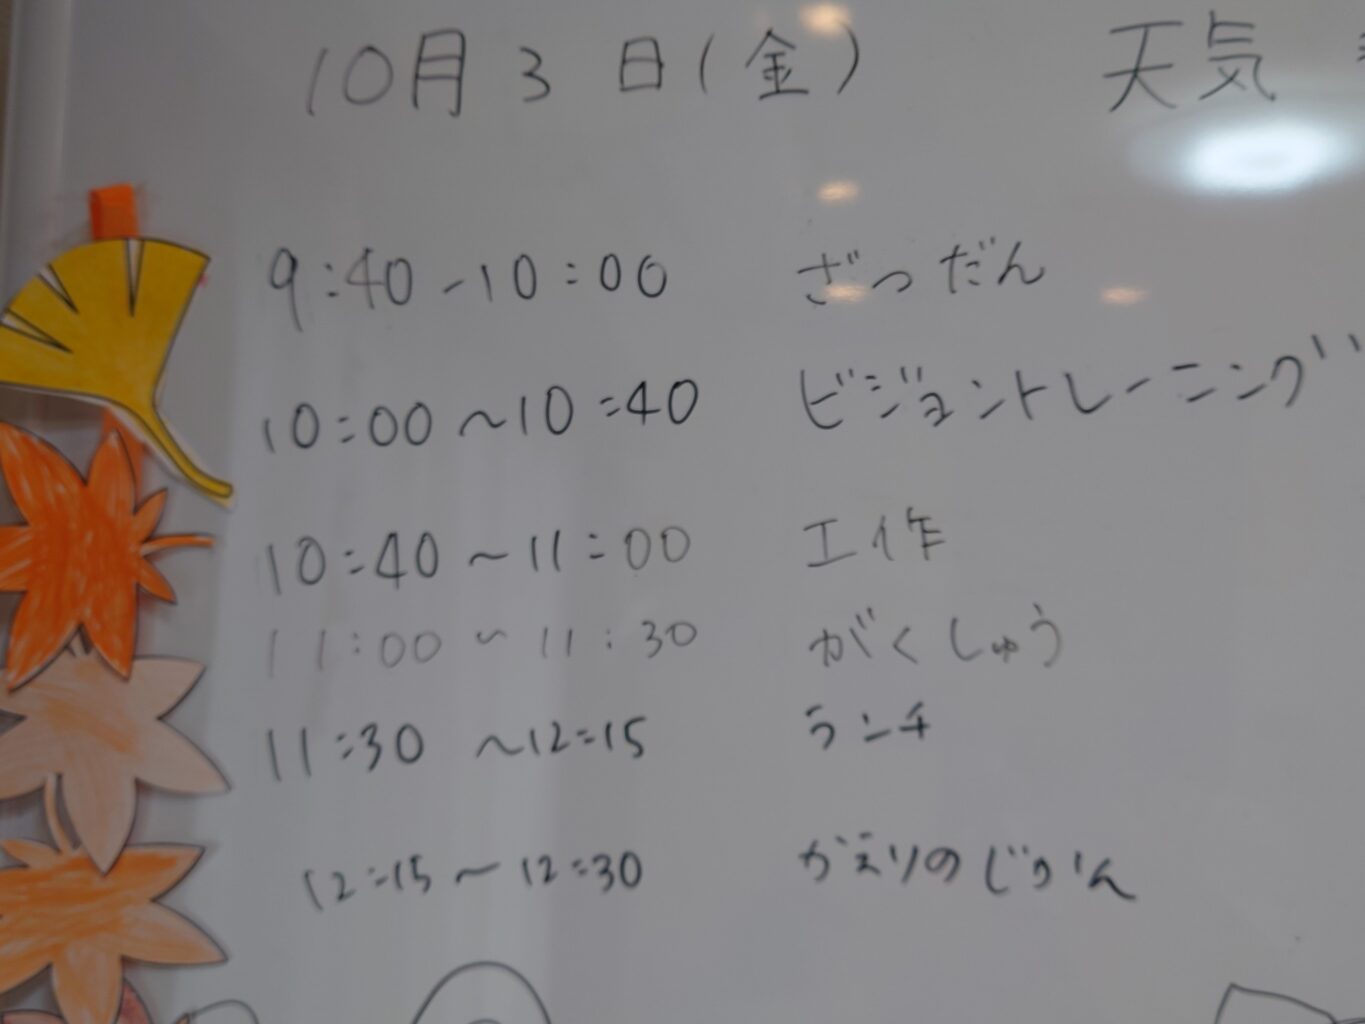 10月3日(金) 天気
9:40-10:00 ざつだん
10:00～10:40 ビジョントレーニング
10:40～11:00 工作
11:00～11:30 がくしゅう
11:30～12:15 ランチ
12:15～12:30 かえりのじかん